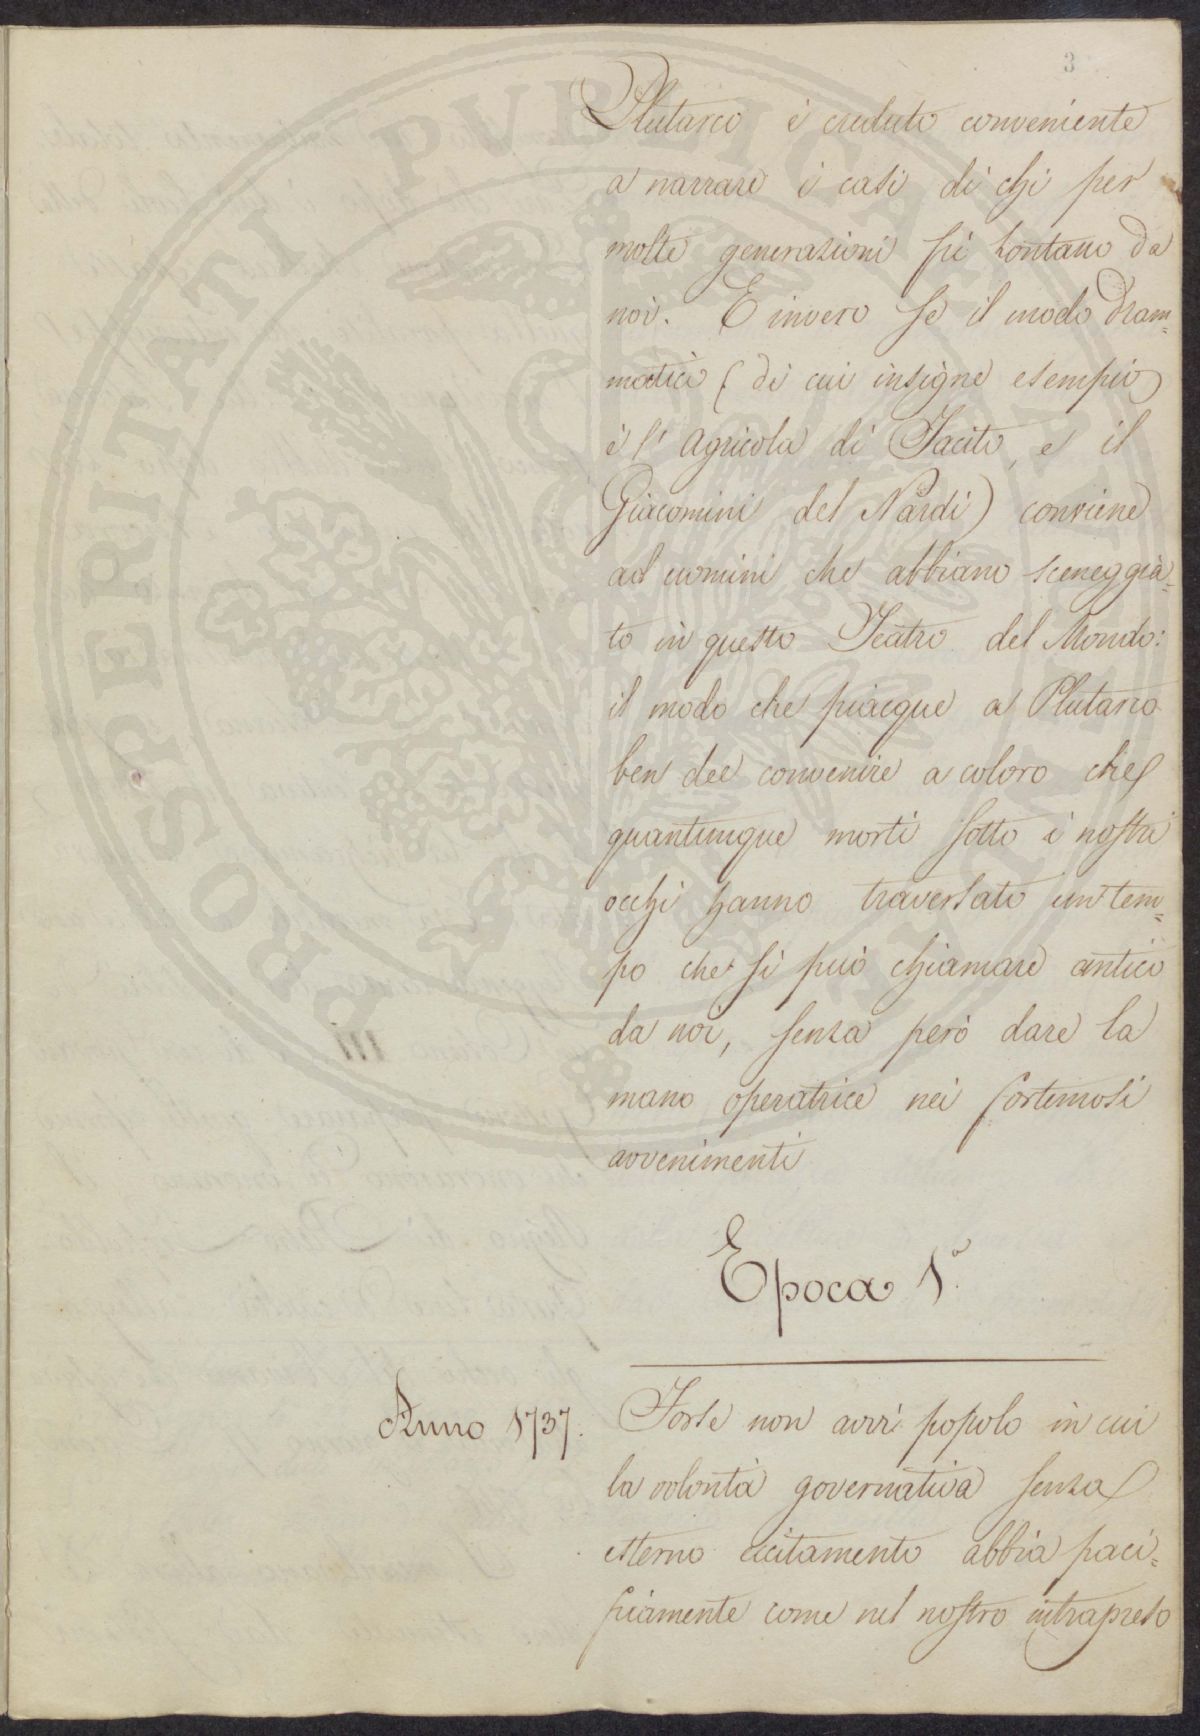 3
Plutarco è creduto conveniente
a narrare i casi di chi per
molte generazioni fù lontano da
noi. E invero se il modo dram=
matico (di cui insigne esempio
è l'Agricola di Tacito, e il
Giacomini del Nardi) conviene
ad uomini che abbiano sceneggia=
to in questo Teatro del Mondo:
il modo che piacque a Plutarco
ben dee convenire a coloro che
quantunque morti sotto i nostri
occhi hanno traversato un tem=
po che si può chiamare antico
da noi, senza però dare la
mano operatrice nei fortunosi
avvenimenti
Epoca 1ª.
Anno 1737.
Forse non avvi popolo in cui
la volontà governativa senza
esterno eccitamento abbia paci=
ficamente come nel nostro intrapreso
PROSPERITATI PUBLICAE